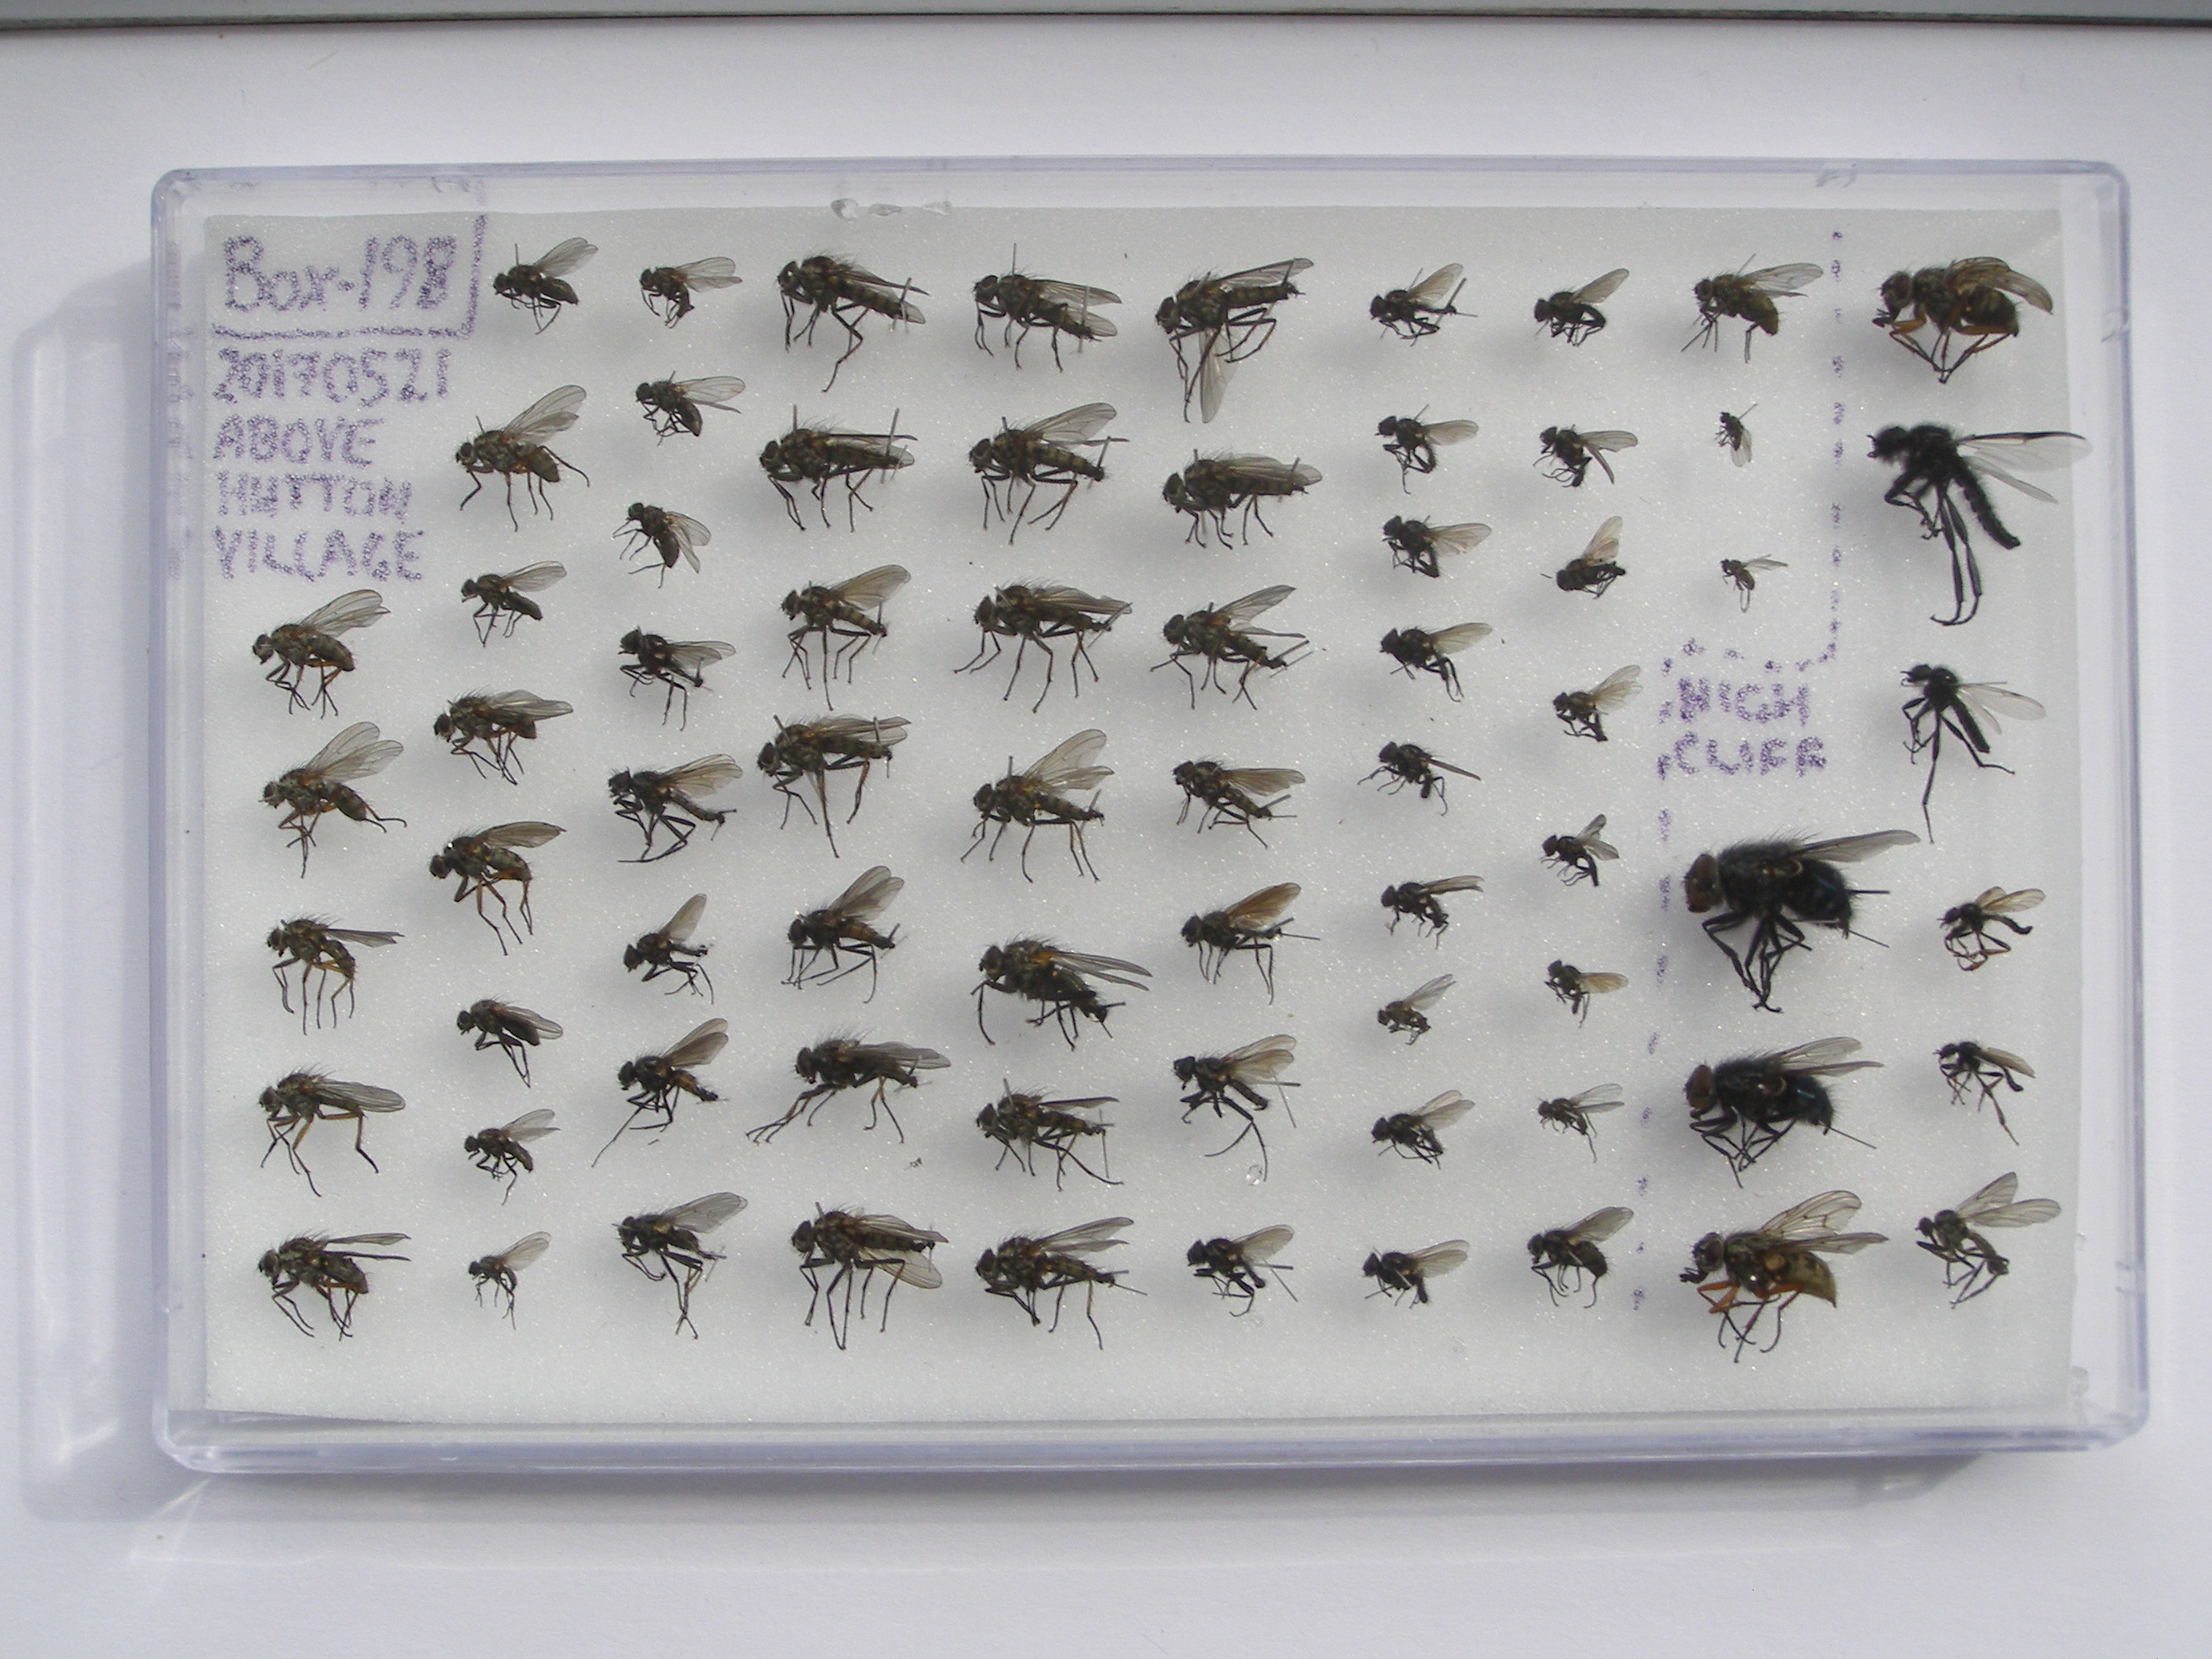 Box-198
20170521
ABOVE
HUTTON
VILLAGE
HIGH
CLIFF